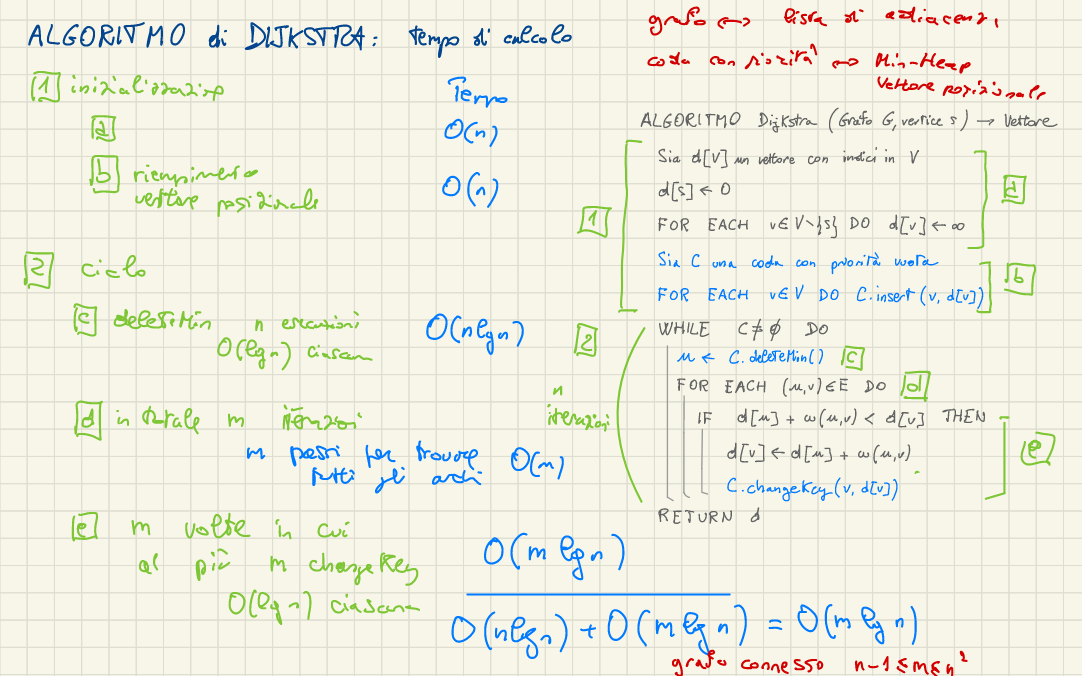 ALGORITMO di DIJKSTRA: tempo di calcolo
grafo ↔ lista di adiacenza
coda con priorità ↔ Min-Heap
Vettore posizionale
1 inizializzazione
Tempo
a O(n)
b riempimento
vettore posizionale
O(n)
2 ciclo
c deleteMin n esecuzioni
O(lg n) ciascuna
O(n lg n)
d in totale m iterazioni
m passi per trovare
tutti gli archi
O(m)
e m volte in cui
al più m changeKey
O(lg n) ciascuna
O(m lg n)
O(n lg n) + O(m lg n) = O(m lg n)
grafo connesso n-1 ≤ m ≤ n²
ALGORITMO Dijkstra (Grafo G, vertice s) → Vettore
1
Sia d[V] un vettore con indici in V
d[s] ← 0
FOR EACH v∈V\{s} DO d[v] ← ∞
a
Sia C una coda con priorità vuota
FOR EACH v∈V DO C.insert(v, d[v])
b
2
n
iterazioni
WHILE C ≠ ∅ DO
u ← C.deleteMin() c
FOR EACH (u,v)∈E DO d
IF d[u] + ω(u,v) < d[v] THEN
d[v] ← d[u] + ω(u,v)
C.changeKey(v, d[v])
e
RETURN d